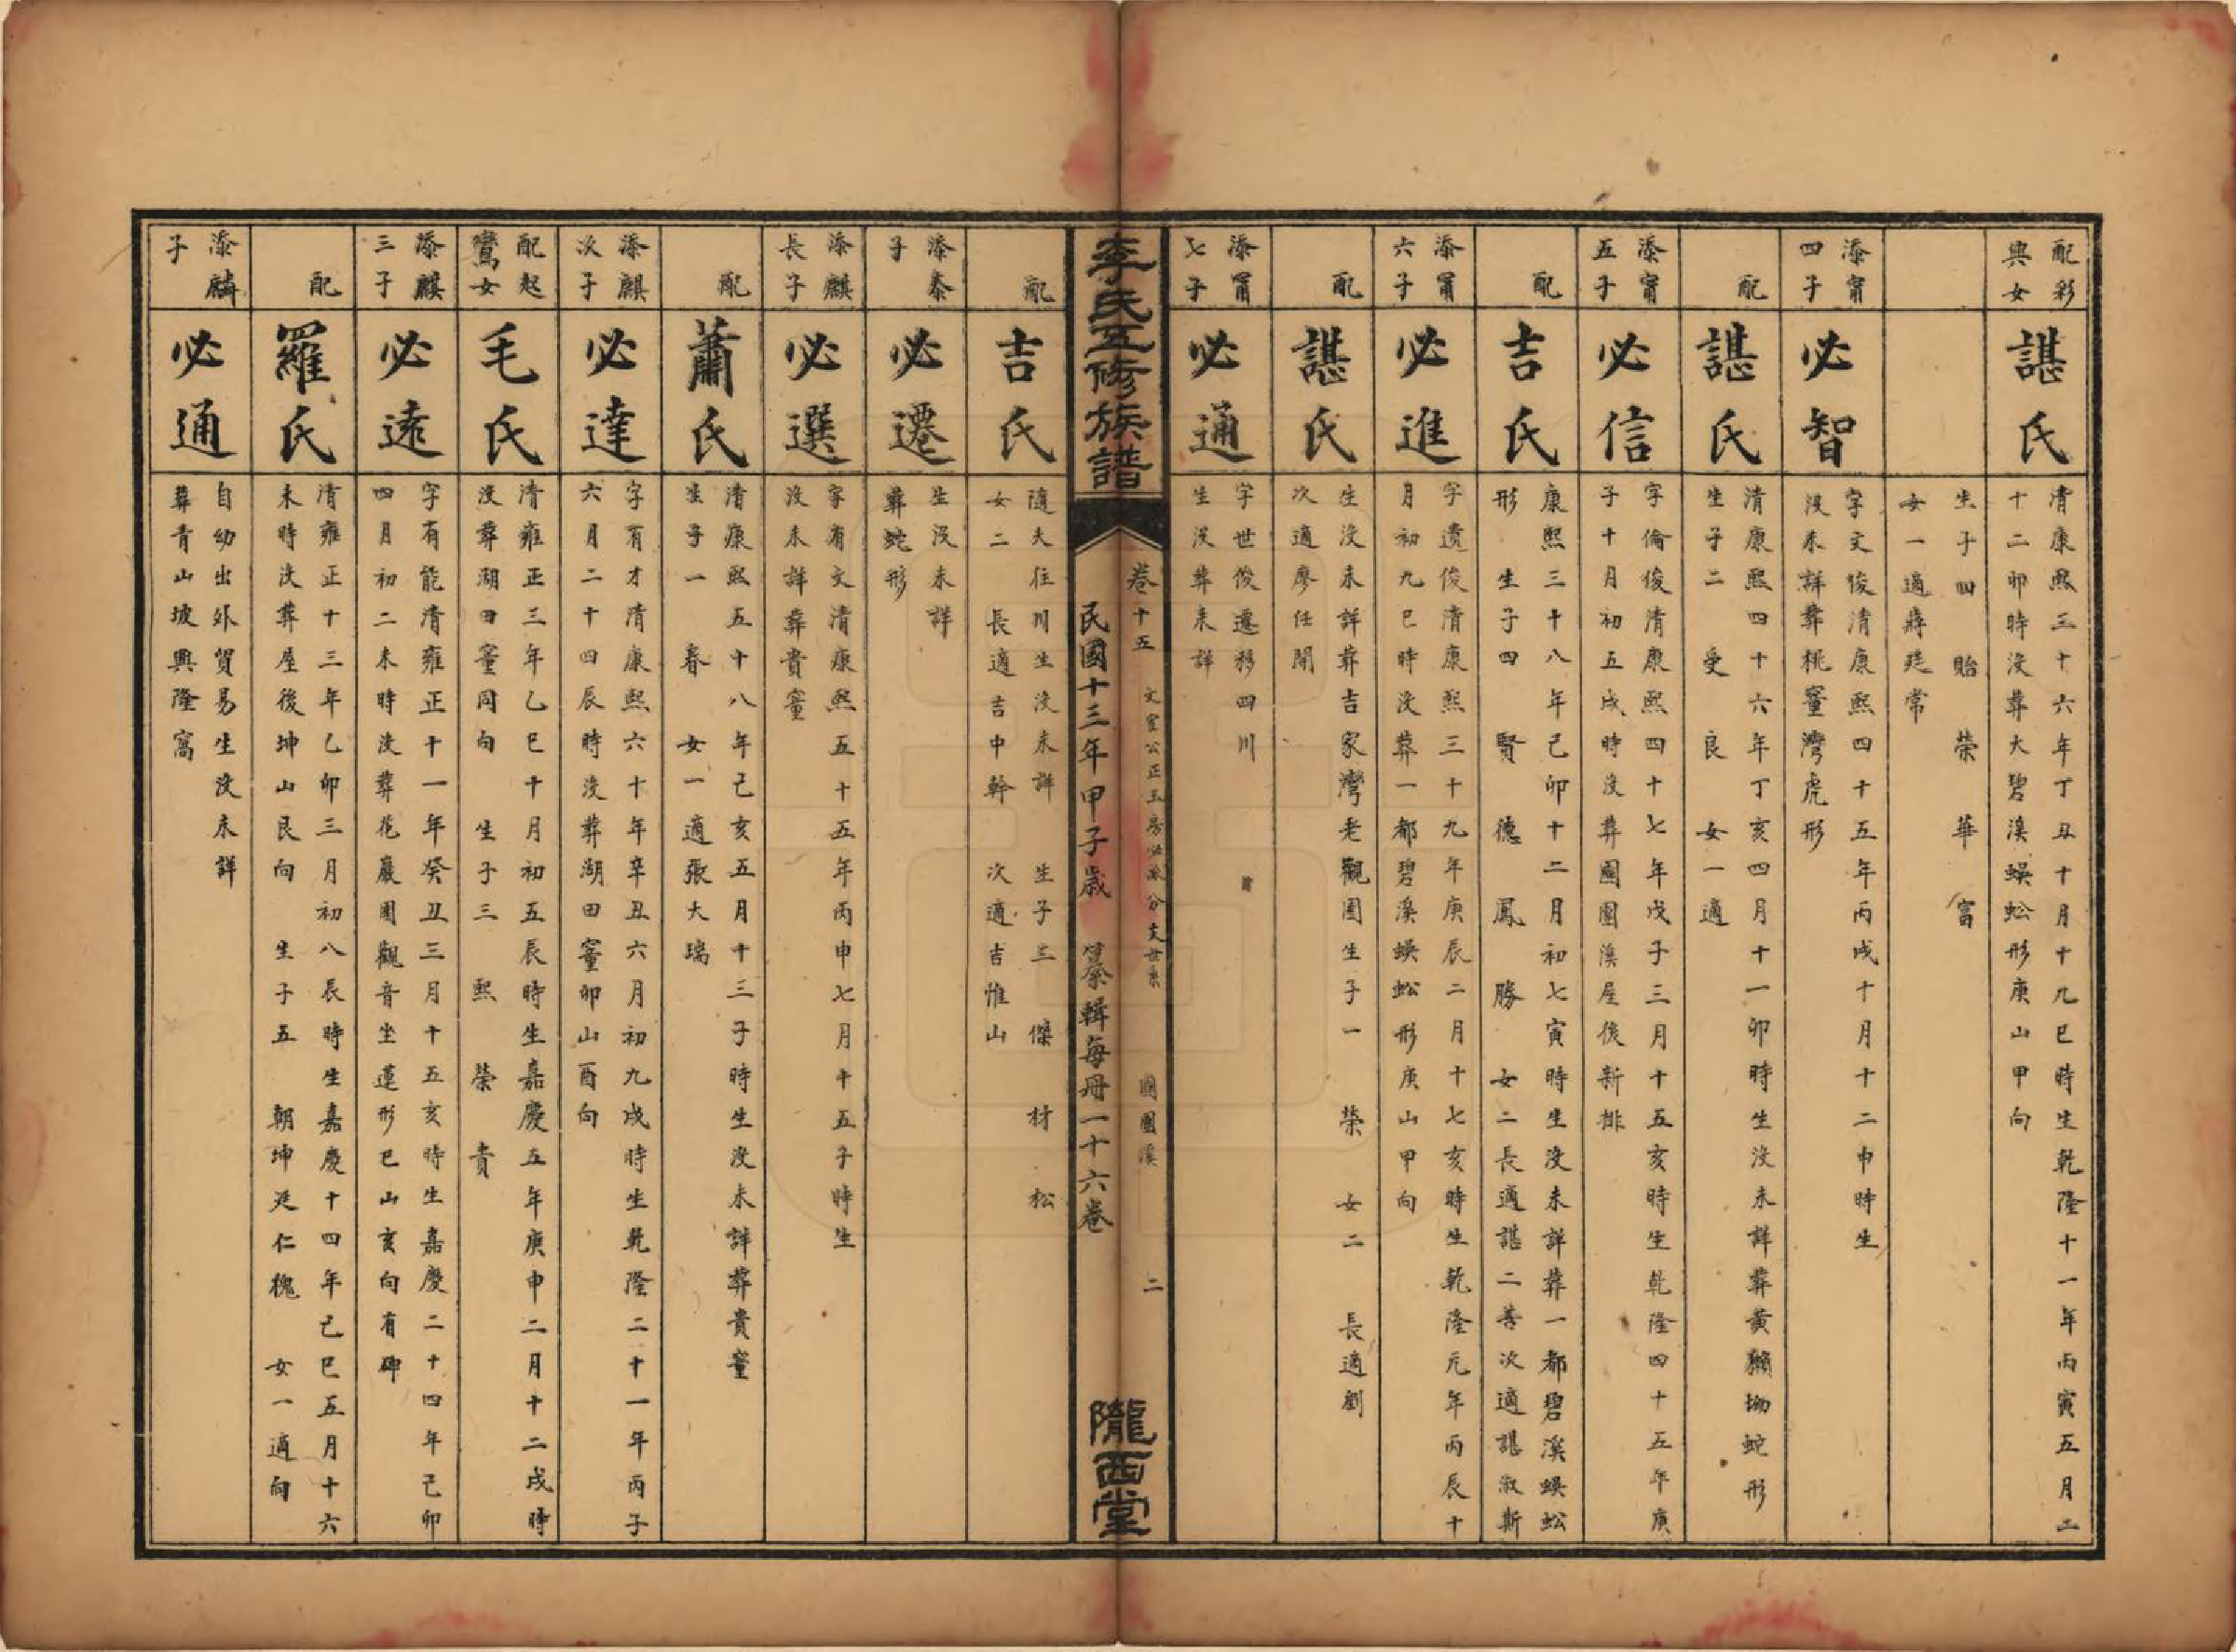 配彩
興女
諶氏
清康熙三十六年丁丑十月十九巳時生乾隆十一年丙寅五月二
十二卯時沒葬大碧溪蜈蚣形庚山甲向
生子四 貽 榮 華 富
女一適蔣廷常
添甯
四子
必智
字文俊清康熙四十五年丙戌十月十二申時生
沒未詳葬桃窰灣虎形
配
諶氏
清康熙四十六年丁亥四月十一卯時生沒未詳葬黃獺坳蛇形
生子二 受 良 女一適
添甯
五子
必信
字倫俊清康熙四十七年戊子三月十五亥時生乾隆四十五年庚
子十月初五戌時沒葬團團溪屋後新排
配
吉氏
康熙三十八年己卯十二月初七寅時生沒未詳葬一都碧溪蜈蚣
形 生子四 賢 德 鳳 勝 女二長適諶二善次適諶淑斯
添甯
六子
必進
字遺俊清康熙三十九年庚辰二月十七亥時生乾隆元年丙辰十
月初九巳時沒葬一都碧溪蜈蚣形庚山甲向
配
諶氏
生沒未詳葬吉家灣老觀園生子一 榮 女二 長適劉
次適廖任開
添甯
七子
必通
字世俊遷移四川
生沒葬未詳
李氏五修族譜
卷十五
文 公正玉房必派分支世系
團團溪
二
民國十三年甲子歲 纂輯每冊一十六卷
隴西堂
配
吉氏
隨夫往川生沒未詳 生子三 傑 材 松
女二 長適吉中幹 次適吉惟山
添泰
子
必遷
生沒未詳
葬蛇形
添麒
長子
必選
字有文清康熙五十五年丙申七月十五子時生
沒未詳葬貴窰
配
蕭氏
清康熙五十八年己亥五月十三子時生沒未詳葬貴窰
生子一 春 女一適張大瑞
添麒
次子
必達
字有才清康熙六十年辛丑六月初九戌時生乾隆二十一年丙子
六月二十四辰時沒葬湖田窰卯山酉向
配起
鸞女
毛氏
清雍正三年乙巳十月初五辰時生嘉慶五年庚申二月十二戌時
沒葬湖田窰同向 生子三 熙 榮 貴
添麒
三子
必遠
字有能清雍正十一年癸丑三月十五亥時生嘉慶二十四年己卯
四月初二未時沒葬花嚴園觀音坐蓮形巳山亥向有碑
配
羅氏
清雍正十三年乙卯三月初八辰時生嘉慶十四年己巳五月十六
未時沒葬屋後坤山艮向 生子五 朝坤廷仁槐 女一適向
添麟
子
必通
自幼出外貿易生沒未詳
葬青山坡興隆窩